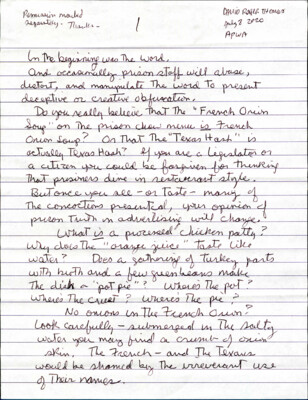 Permission mailed
separately.
Thanks -
1
July 2 2020
APWA
In the beginning was the word.
And occasionally prison staff will abuse,
distort, and manipulate the word to present
deceptive or creative obfuscation.
Do you really believe that the "French Onion
Soup" on the prison chow menu is French
Onion Soup? Or that the "Texas Hash" is
actually Texas Hash? If you are a legislator or
a citizen you could be forgiven for thinking
that prisoners dine in restaurant style.
But once you see - or taste - many of
the concoctions presented, your opinion of
prison truth in advertising will change.
What is a processed chicken patty?
Why does the "orange juice" taste like
water? Does a gathering of turkey parts
with broth and a few green beans make
the dish a "pot pie"? Where's the pot?
Where's the crust? Where's the pie?
No onions in the French Onion?
Look carefully - submerged in the salty
water you may find a crumb of onion
skin. The French - and the Texans
would be shamed by the irreverant use
of their names.